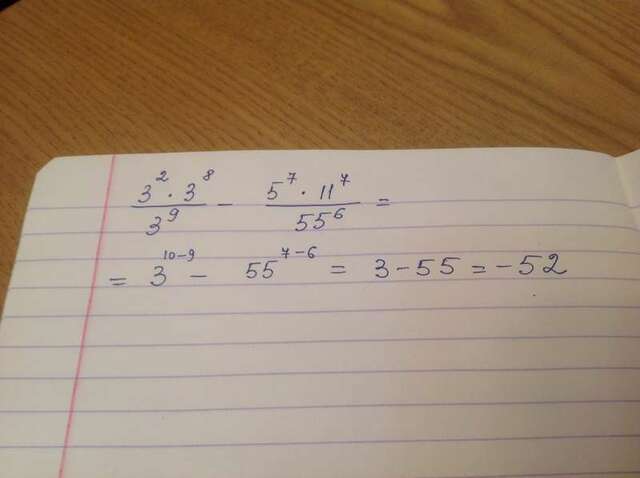 3² · 3⁸ / 3⁹ − 5⁷ · 11⁷ / 55⁶ =
= 3¹⁰⁻⁹ − 55⁷⁻⁶ = 3 − 55 = −52